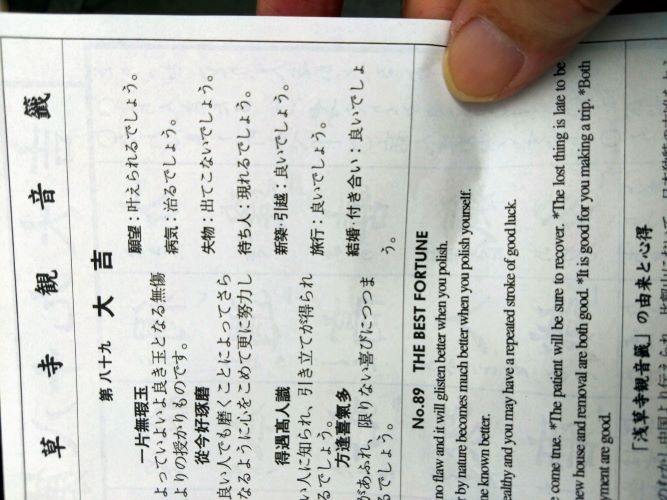 草寺観音籤
第八十九 大吉
一片無瑕玉
よっていよいよ良き玉となる無傷
よりの授かりものです。
從今好琢磨
良い人でも磨くことによってさら
なるように心をこめて更に努力し
得遇髙人識
い人に知られ、引き立てが得られ
るでしょう。
方逢喜氣多
があふれ、限りない喜びにつつま
るでしょう。
願望：叶えられるでしょう。
病気：治るでしょう。
失物：出てこないでしょう。
待ち人：現れるでしょう。
新築・引越：良いでしょう。
旅行：良いでしょう。
結婚・付き合い：良いでしょ
う。
No.89 THE BEST FORTUNE
no flaw and it will glisten better when you polish.
by nature becomes much better when you polish yourself.
known better.
ealthy and you may have a repeated stroke of good luck.
come true. *The patient will be sure to recover. *The lost thing is late to be
new house and removal are both good. *It is good for you making a trip. *Both
yment are good.
「浅草寺観音籤」の由来と心得